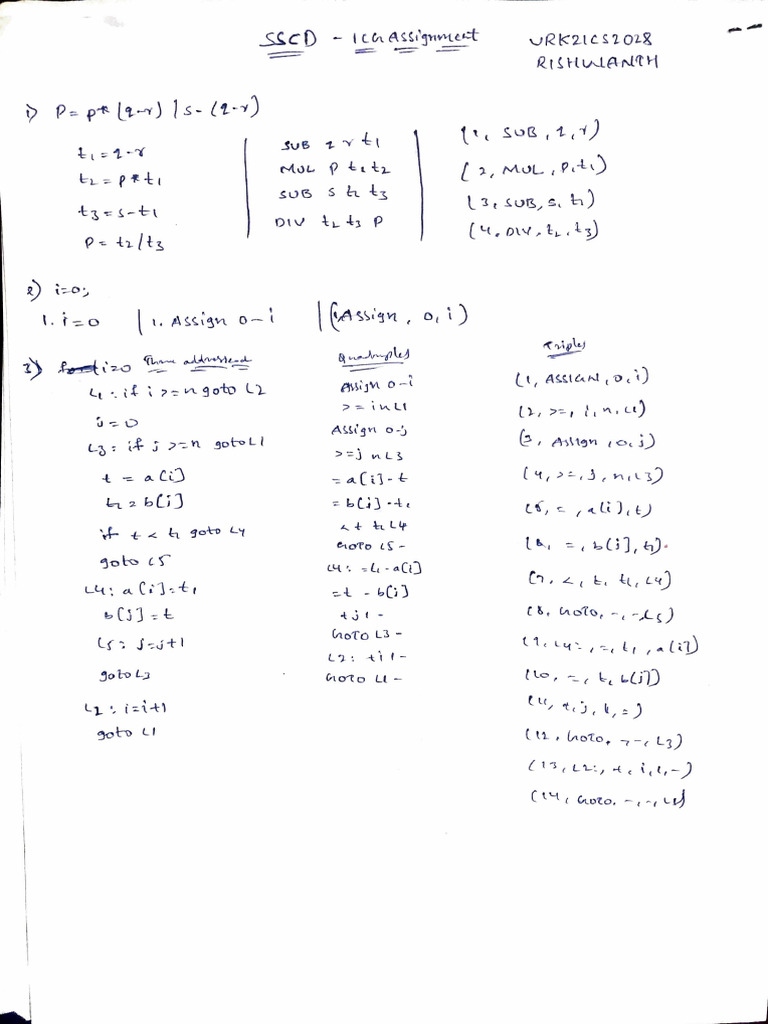 SSCD - ICG Assignment
URK21CS2028
RISHWANTH
1) P = p* (q-r) / s - (q-r)
t1 = q-r
t2 = p*t1
t3 = s-t1
P = t2/t3
SUB q r t1
MUL P t1 t2
SUB s t2 t3
DIV t2 t3 P
(1, SUB, q, r)
(2, MUL, P, t1)
(3, SUB, s, t1)
(4, DIV, t2, t3)
2) i=0;
1. i=0 | 1. Assign 0-i | (1 Assign, 0, i)
3) i=0 Three addressed
L1: if i >= n goto L2
j=0
L3: if j >= n goto L1
t = a[i]
t1 = b[j]
if t < t1 goto L4
goto L5
L4: a[i] = t1
b[j] = t
L5: j=j+1
goto L3
L2: i=i+1
goto L1
Quadruples
Assign 0-i
>= i n L1
Assign 0-j
>= j n L3
= a[i] - t
= b[j] - t1
< t t1 L4
GOTO L5 -
L4: = t1 - a[i]
= t - b[j]
+ j 1 -
GOTO L3 -
L2: + i 1 -
GOTO L1 -
Triples
(1, ASSIGN, 0, i)
(2, >=, i, n, L1)
(3, Assign, 0, j)
(4, >=, j, n, L3)
(5, =, a[i], t)
(6, =, b[j], t1)
(7, <, t, t1, L4)
(8, GOTO, -, -L5)
(9, L4:, =, t1, a[i])
(10, =, t, b[j])
(11, +, j, 1, =)
(12, GOTO, -, -, L3)
(13, L2:, +, i, 1, -)
(14, GOTO, -, -, L1)